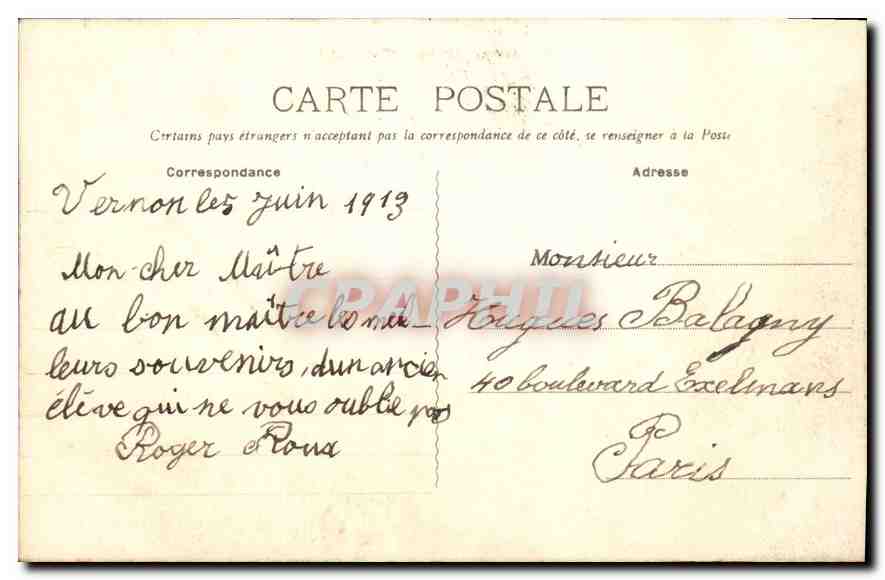 CARTE POSTALE
Certains pays étrangers n'acceptant pas la correspondance de ce côté, se renseigner à la Poste
Correspondance
Vernon le 5 Juin 1913
Mon cher Maître
au bon maître les meil-
leurs souvenirs, d'un ancien
élève qui ne vous oublie pas
Roger Roux
Adresse
Monsieur
Hugues Balagny
40 boulevard Exelmans
Paris
CPAPHIL